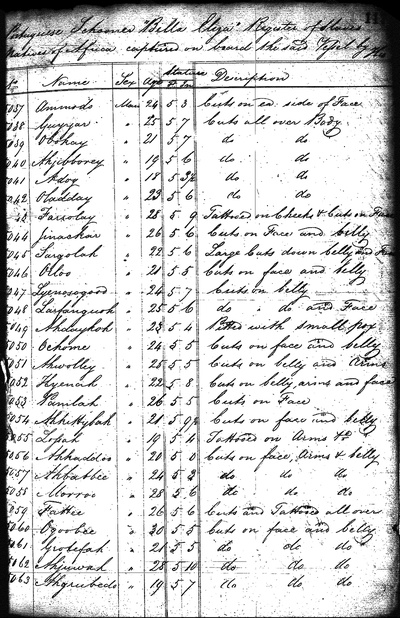 Portuguese Schooner "Bella Eliza" Register of Slaves
Natives of Africa captured on board the said Vessel by
No Name Sex Age Stature Ft In Description
5037 Ammodo Man 24 5 3 Cuts on ea. side of Face
5038 Guyjar " 25 5 7 Cuts all over Body
5039 Obokay " 21 5 7 do do
5040 Ahjobborey " 19 5 6 do do
5041 Adog " 18 5 3½ do do
5042 Oladday " 23 5 6 do do
Farrolay " 25 5 9 Tattoed on Cheeks & Cuts on Face
5044 Jinaskar " 26 5 6 Cuts on Face and belly
5045 Sugolah " 22 5 6 Large Cuts down belly and
5046 Otloo " 21 5 5 Cuts on face and belly
5047 Lyenosogood " 24 5 7 Cuts on belly
5048 Layanguoh " 25 5 6 do " do and Face
5049 Ahdaykoh " 23 5 4 Pitted with small pox
5050 Ochome " 24 5 5 Cuts on face and belly
5051 Ahwolley " 25 5 5 Cuts on belly and Arms
5052 Hyenah " 22 5 8 Cuts on belly, arms and face
5053 Yamlah " 26 5 5 Cuts on Face
5054 Ahhettybah " 21 5 9½ Cuts on face and belly
5055 Lofah " 19 5 4 Tattoed on Arms &c
5056 Ahkaddoo " 20 5 0 Cuts on face, Arms & belly
5057 Ahbabbie " 24 5 2 do do do
5058 Morroo " 28 5 6 do do do
5059 Fattee " 26 5 6 Cuts and Tattoed all over
5060 Ogoobee " 30 5 5 Cuts on face and belly
5061 Grotefah " 21 5 5 do do do
5062 Ahjuwah " 28 5 10 do do do
5063 Ahgrubedo " 19 5 7 do do do